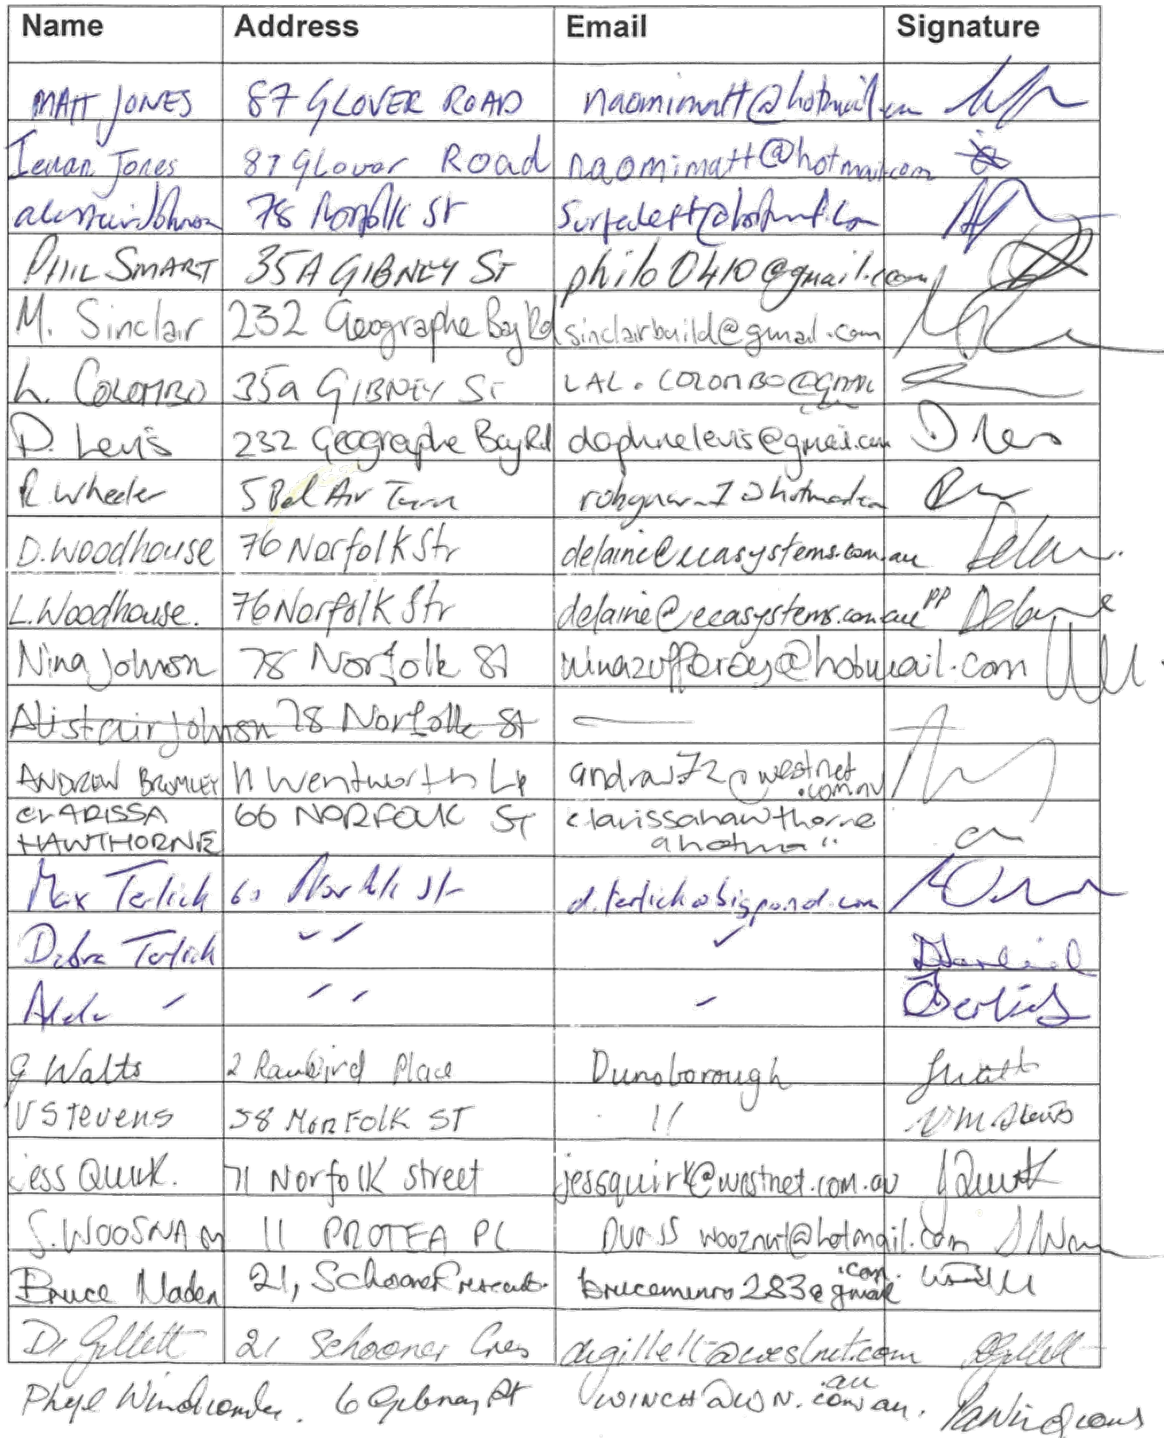 Name Address Email Signature
MATT JONES 87 GLOVER ROAD naomimatt@hotmail.com
Ieuan Jones 87 Glover Road naomimatt@hotmail.com
alistair Johnson 78 Norfolk St
PHIL SMART 35A GIBNEY ST philo0410@gmail.com
M. Sinclair 232 Geographe Bay Rd sinclairbuild@gmail.com
L. COLOMBO 35a GIBNEY ST LAL.COLOMBO@GMAIL
D. Levis 232 Geographe Bay Rd daphnelevis@gmail.com
R. Wheeler 5 Bel Air
D. Woodhouse 76 Norfolk Str delaine@eeasystems.com.au
L. Woodhouse. 76 Norfolk Str delaine@eeasystems.com.au pp
Nina Johnson 78 Norfolk St ninazufferey@hotmail.com
Alistair Johnson 78 Norfolk St
ANDREW BROMLEY 11 Wentworth Lp andrew72@westnet
.com.au
CLARISSA 66 NORFOLK ST clarissahawthorne
HAWTHORNE
Max Terlich Norfolk st d.terlich@bigpond.com
Debra Terlich
G Watts 2 Place Dunsborough
V Stevens 58 NORFOLK ST "
Jess Quirk. 71 Norfolk street jessquirk@westnet.com.au
S. WOOSNAM 11 PROTEA PL wooznut@hotmail.com
Bruce 21, Schooner Crescent brucemunro283@gmail
.com.
D. Gillett 21 Schooner Cres dgillett@westnet.com
.au
6 Gibney St